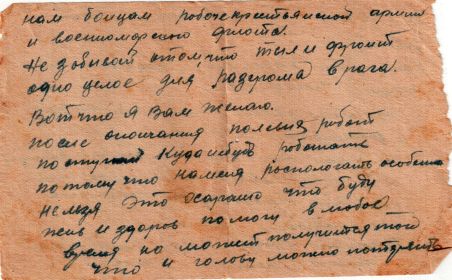 нам бойцам робочекрестьянской армии
и военноморского флота.
Не добывай отом, что тыл и фронт
одно целое для разгрома врага.
Вотчто я Вам желаю.
после окончания полевых работ
поступай Кудонибуть роботать
потому что наменя располагать особенно
нельзя это осторожно что буду
жив и здоров помогу в любое
время но может получится той
что и голову можно потерять